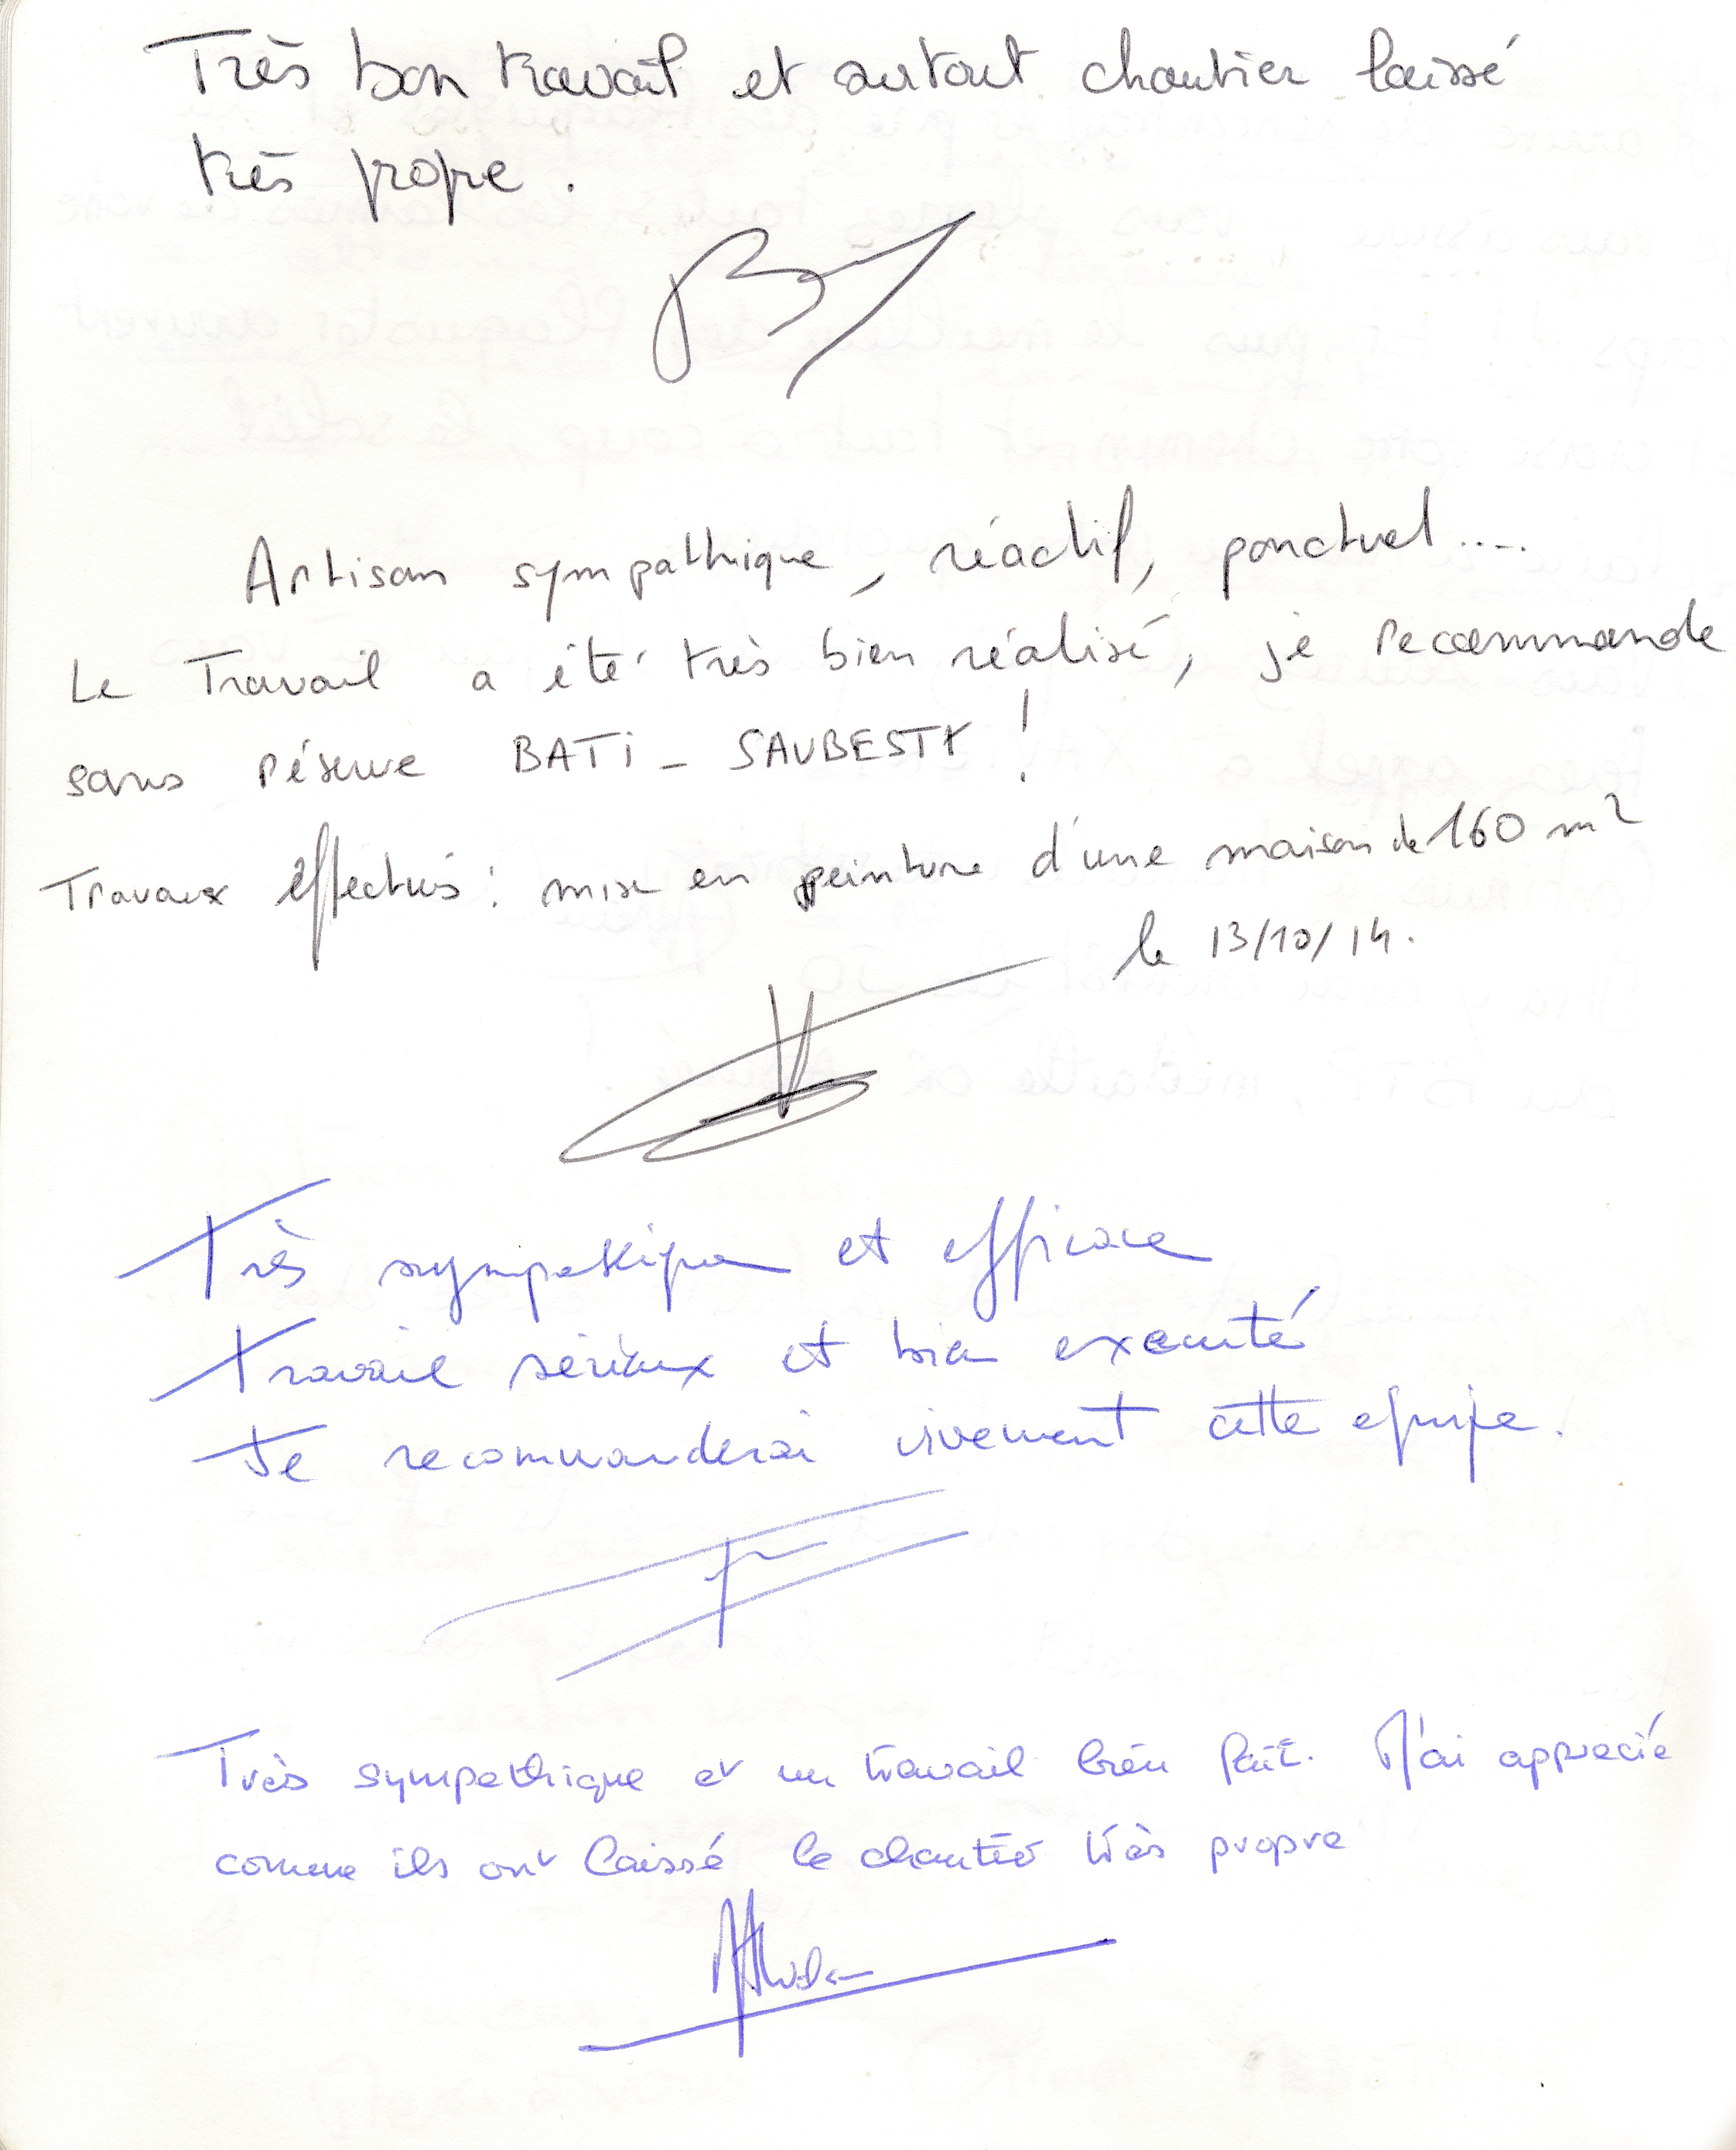 Très bon travail et surtout chantier laissé
très propre.
Artisan sympathique, réactif, ponctuel....
Le Travail a été très bien réalisé, je recommande
sans réserve BATI - SAUBESTY !
Travaux éffectués : mise en peinture d'une maison de 160 m²
le 13/10/14.
Très sympathique et efficace
Travail sérieux et bien executé
Je recommanderai vivement cette equipe.
Très sympathique et un travail bien fait. J'ai apprecié
comme ils ont laissé le chantier très propre